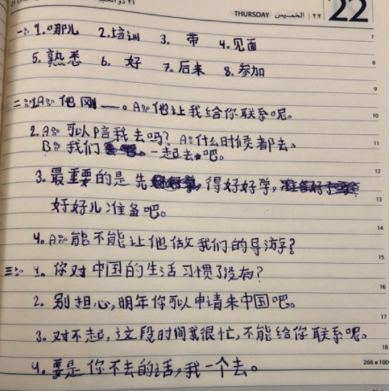 THURSDAY الخميس ٢٢ 22
一: 1. 哪儿 2. 培训 3. 带 4. 见面
5. 熟悉 6. 好 7. 后来 8. 参加
二: 1A: 他刚——。A: 他让我给你联系呢。
2. A: 可以陪我去吗? A: 什么时候都去。
B: 我们一起去吧。
3. 最重要的是先 得好好学,
好好儿准备吧。
4. A: 能不能让他做我们的导游?
三: 1. 你对中国的生活习惯了没有?
2. 别担心,明年你可以申请来中国吧。
3. 对不起,这段时间我很忙,不能给你联系呢。
4. 要是你不去的话,我一个去。
7
8
9
10
11
12
13
14
15
16
17
18
266x100